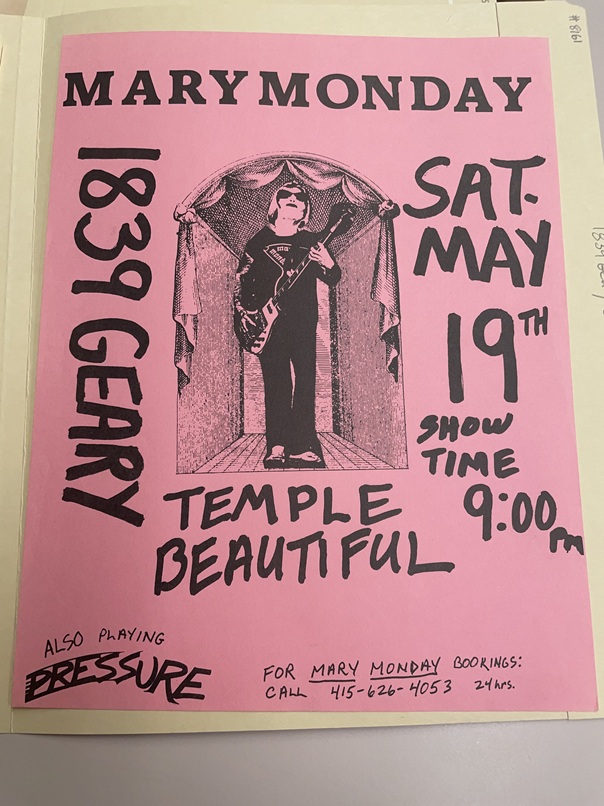 MARY MONDAY
1839 GEARY
SAT.
MAY
19TH
SHOW
TIME
9:00
PM
TEMPLE
BEAUTIFUL
ALSO PLAYING
PRESSURE
FOR MARY MONDAY BOOKINGS:
CALL 415-626-4053 24 hrs.